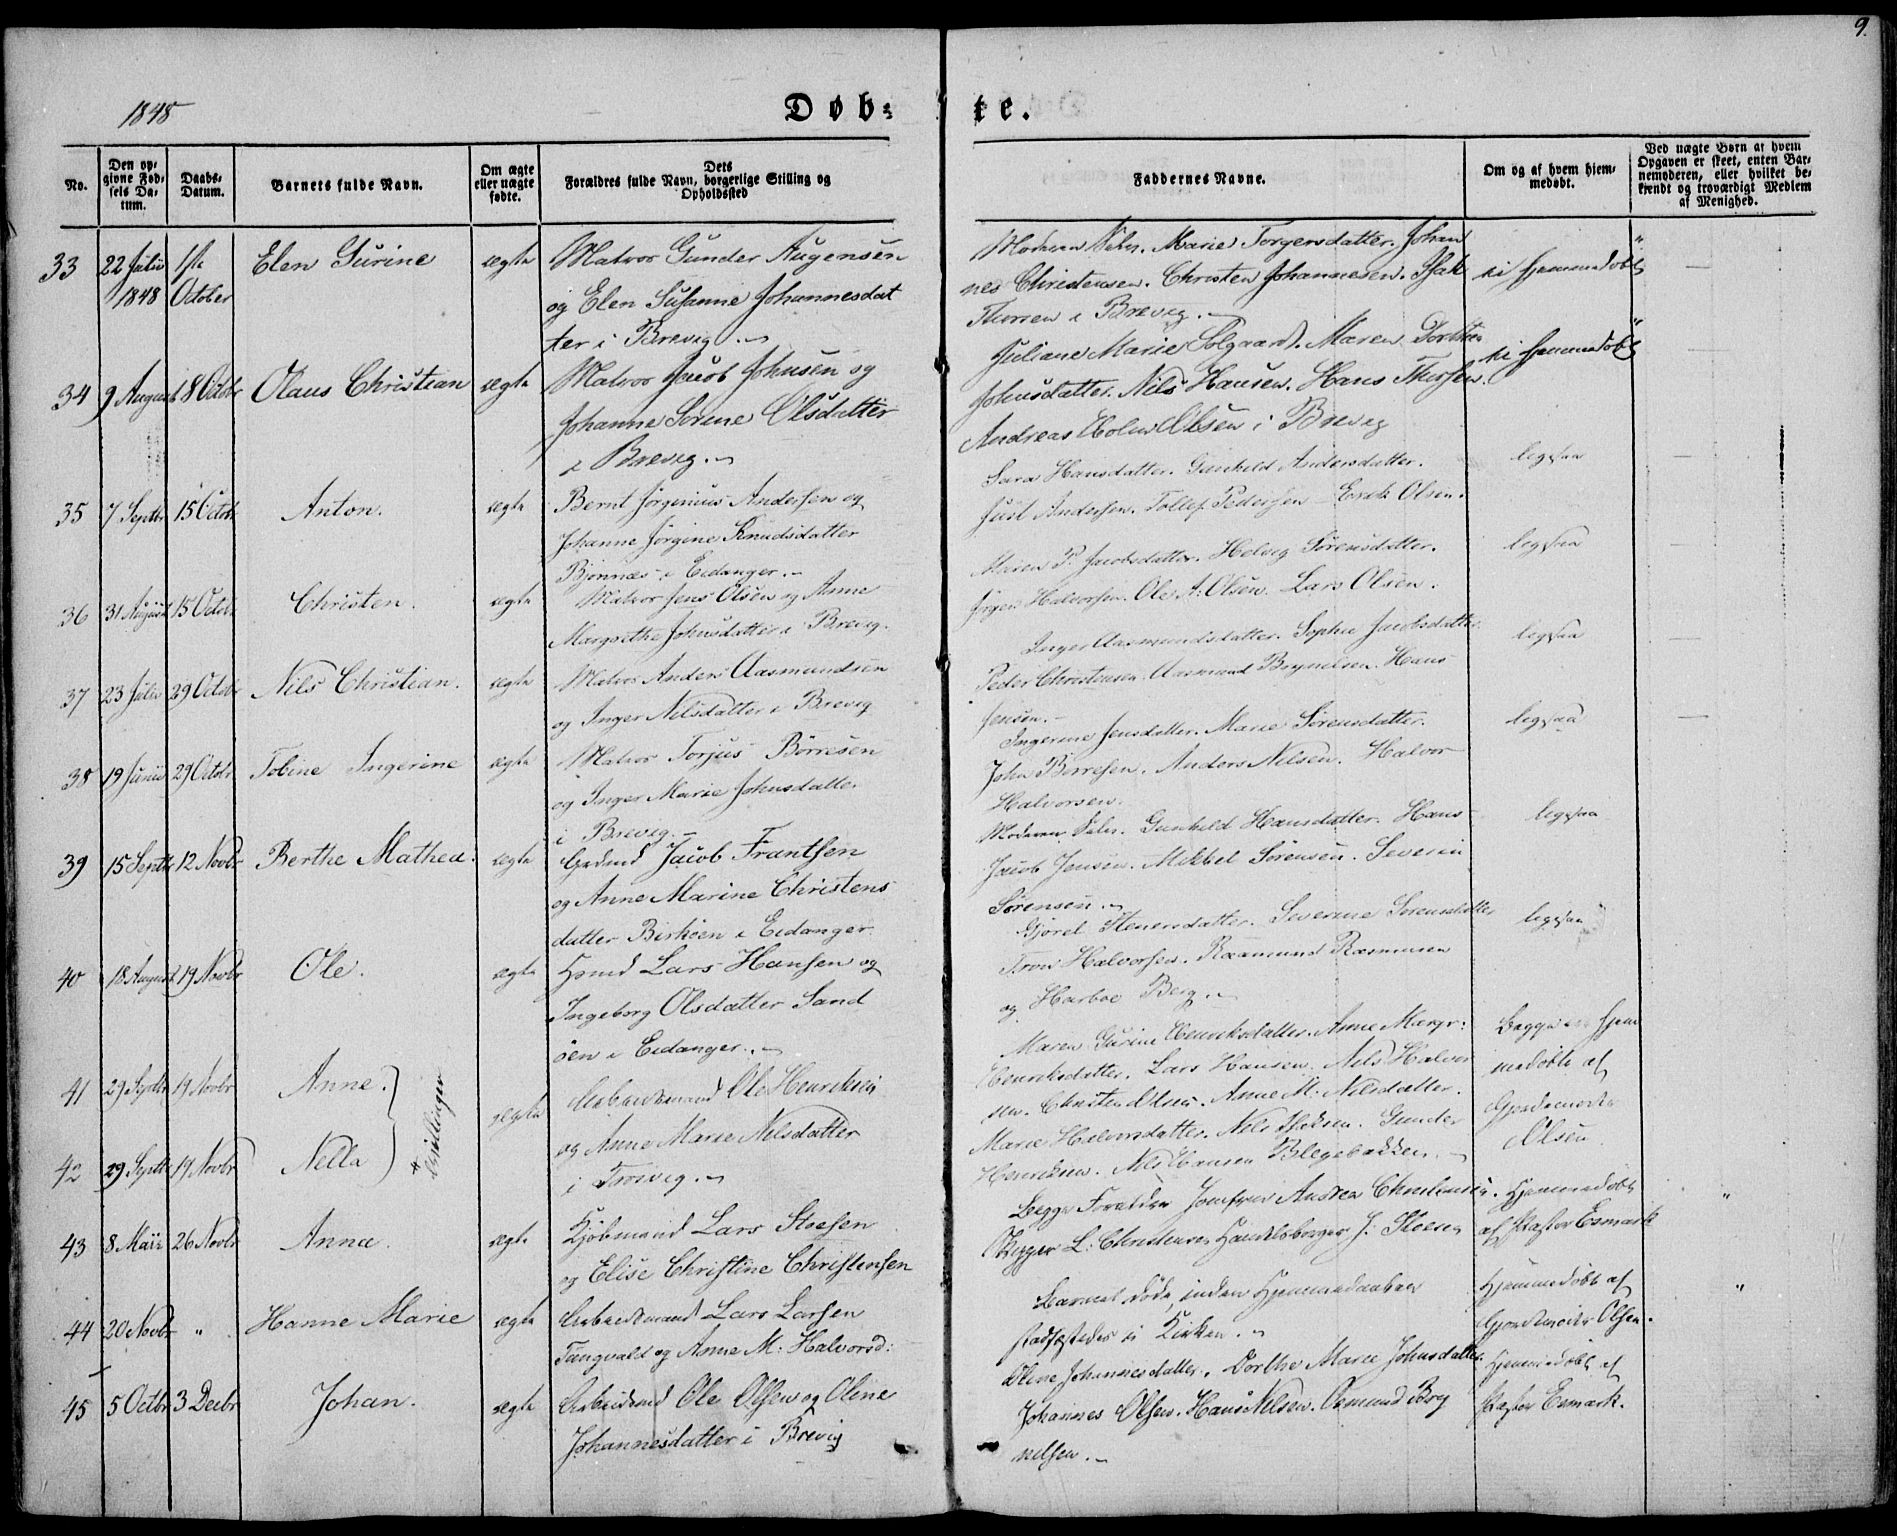 9.
1848
Døb- te.
No.
Den op-
givne Fød-
sels Da-
tum.
Daabs-
Datum.
Barnets fulde Navn.
Om ægte
eller uægte
fødte.
Dets
Forældres fulde Navn, borgerlige Stilling og
Opholdssted
Faddernes Navne.
Om og af hvem hjem-
medøbt.
Ved uægte Børn at hvem
Opgaven er skeet, enten Bar-
nemoderen, eller hvilket be-
kjendt og troværdigt Medlem
af Menighed.
33 22 Julii 1ste Elen Gurine ægte Matros Gunder Augensen
1848 October og Elen Susanne Johannesdat
ter i Brevig.
Moderen Selv. Marie Torgersdatter. Johan
nes Christensen. Christen Johannesen. Isak
Thorsen i Brevig.
ei hjemmedøbt "
34 9 August 8 Octobr Olaus Christian ægte Matros Jacob Johnsen og
Johanne Sorine Olsdatter
i Brevig.
Juliane Marie Solgaard. Maren Dorthea
Johnsdatter. Nils Hansen. Hans Thorsen.
Andreas Holm Olsen i Brevig
ei hjemmedøbt "
35 7 Septbr 15 Octobr Anton. ægte Bernt Jørginius Andersen og
Johanne Jørgine Knudsdatter
Bjønnæs i Eidanger.
Sara Hansdatter. Gunhild Andersdatter.
Just Andersen. Tollef Pedersen. Erik Olsen.
ligesaa
36 31 August 15 Octobr Christen. ægte Matros Jens Olsen og Anne
Margrethe Johnsdatter i Brevig.
Maren P. Jacobsdatter. Helvig Sørensdatter.
Jørgen Halvorsen. Ole A. Olsen. Lars Olsen.
ligesaa
37 23 Julii 29 Octobr Nils Christian. ægte Matros Anders Aasmundsen
og Inger Nilsdatter i Brevig
Inger Aasmundsdatter. Sophie Jacobsdatter
Peder Christensen. Aasmund Brynelsen. Hans
Jensen.
ligesaa
38 19 Junii 29 Octobr Tobine Ingerine ægte Matros Torjus Børresen
og Inger Marie Johnsdatter
i Brevig.
Ingerine Jensdatter. Marie Sørensdatter.
John Børresen. Anders Nilsen. Halvor
Halvorsen.
ligesaa
39 15 Septbr 12 Novbr Berthe Mathea. ægte Grdmd Jacob Frantsen
og Anne Marine Christens
datter Birkøen i Eidanger.
Moderen Selv. Gunhild Hansdatter. Hans
Jacob Jensen. Mikkel Sørensen. Severin
Sørensen.
ligesaa
40 18 August 19 Novbr Ole. ægte Hsmd Lars Hansen og
Ingeborg Olsdatter Sand
øen i Eidanger.
Gjørel Stenersdatter. Severine Sorensdatter
Tron Halvorsen. Rasmund Rasmusen
og Harboe Berg.
ligesaa
41 29 Septbr 19 Novbr Anne.
42 29 Septbr 19 Novbr Nella
Tvillinger
ægte Arbeidsmand Ole Henriksen
og Anne Marie Nilsdatter
i Trosvig.
Maren Gurine Henriksdatter. Anne Margr:
Henriksdatter. Lars Hansen. Nils Halvor
sen. Christen Olsen. Anne M. Nilsdatter.
Marie Halvorsdatter. Nils Isaksen. Gunder
Henriksen. Nils Hansen Blegebakken.
Begge hjem
medøbte af
Gjordemoder
Olsen.
43 8 Maii 26 Novbr Anna. ægte Kjøbmand Lars Stoesen
og Elise Christine Christensen
Begge Forældre Jomfrue Andrea Christensen.
L. Christensen Handelsborger J. Stoesen
Hjemmedøbt
af Pastor Esmark
"
44 20 Novbr " Hanne Marie ægte Arbeidsmand Lars Larsen
Tangvald og Anne M: Halvorsd:
Barnet døde, inden Hjemmedaaben
stadfæstedes i Kirken.
Hjemmedøbt af
Gjordemoder Olsen.
"
45 5 Octbr 3 Decbr Johan. ægte Arbeidsmd Ole Olsen og Oline
Johannesdatter i Brevig
Oline Johannesdatter. Dorthe Marie Johnsdatter
Johannes Olsen. Hans Nilsen. Osmund Bry
nilsen.
Hjemmedøbt af
Pastor Esmark.